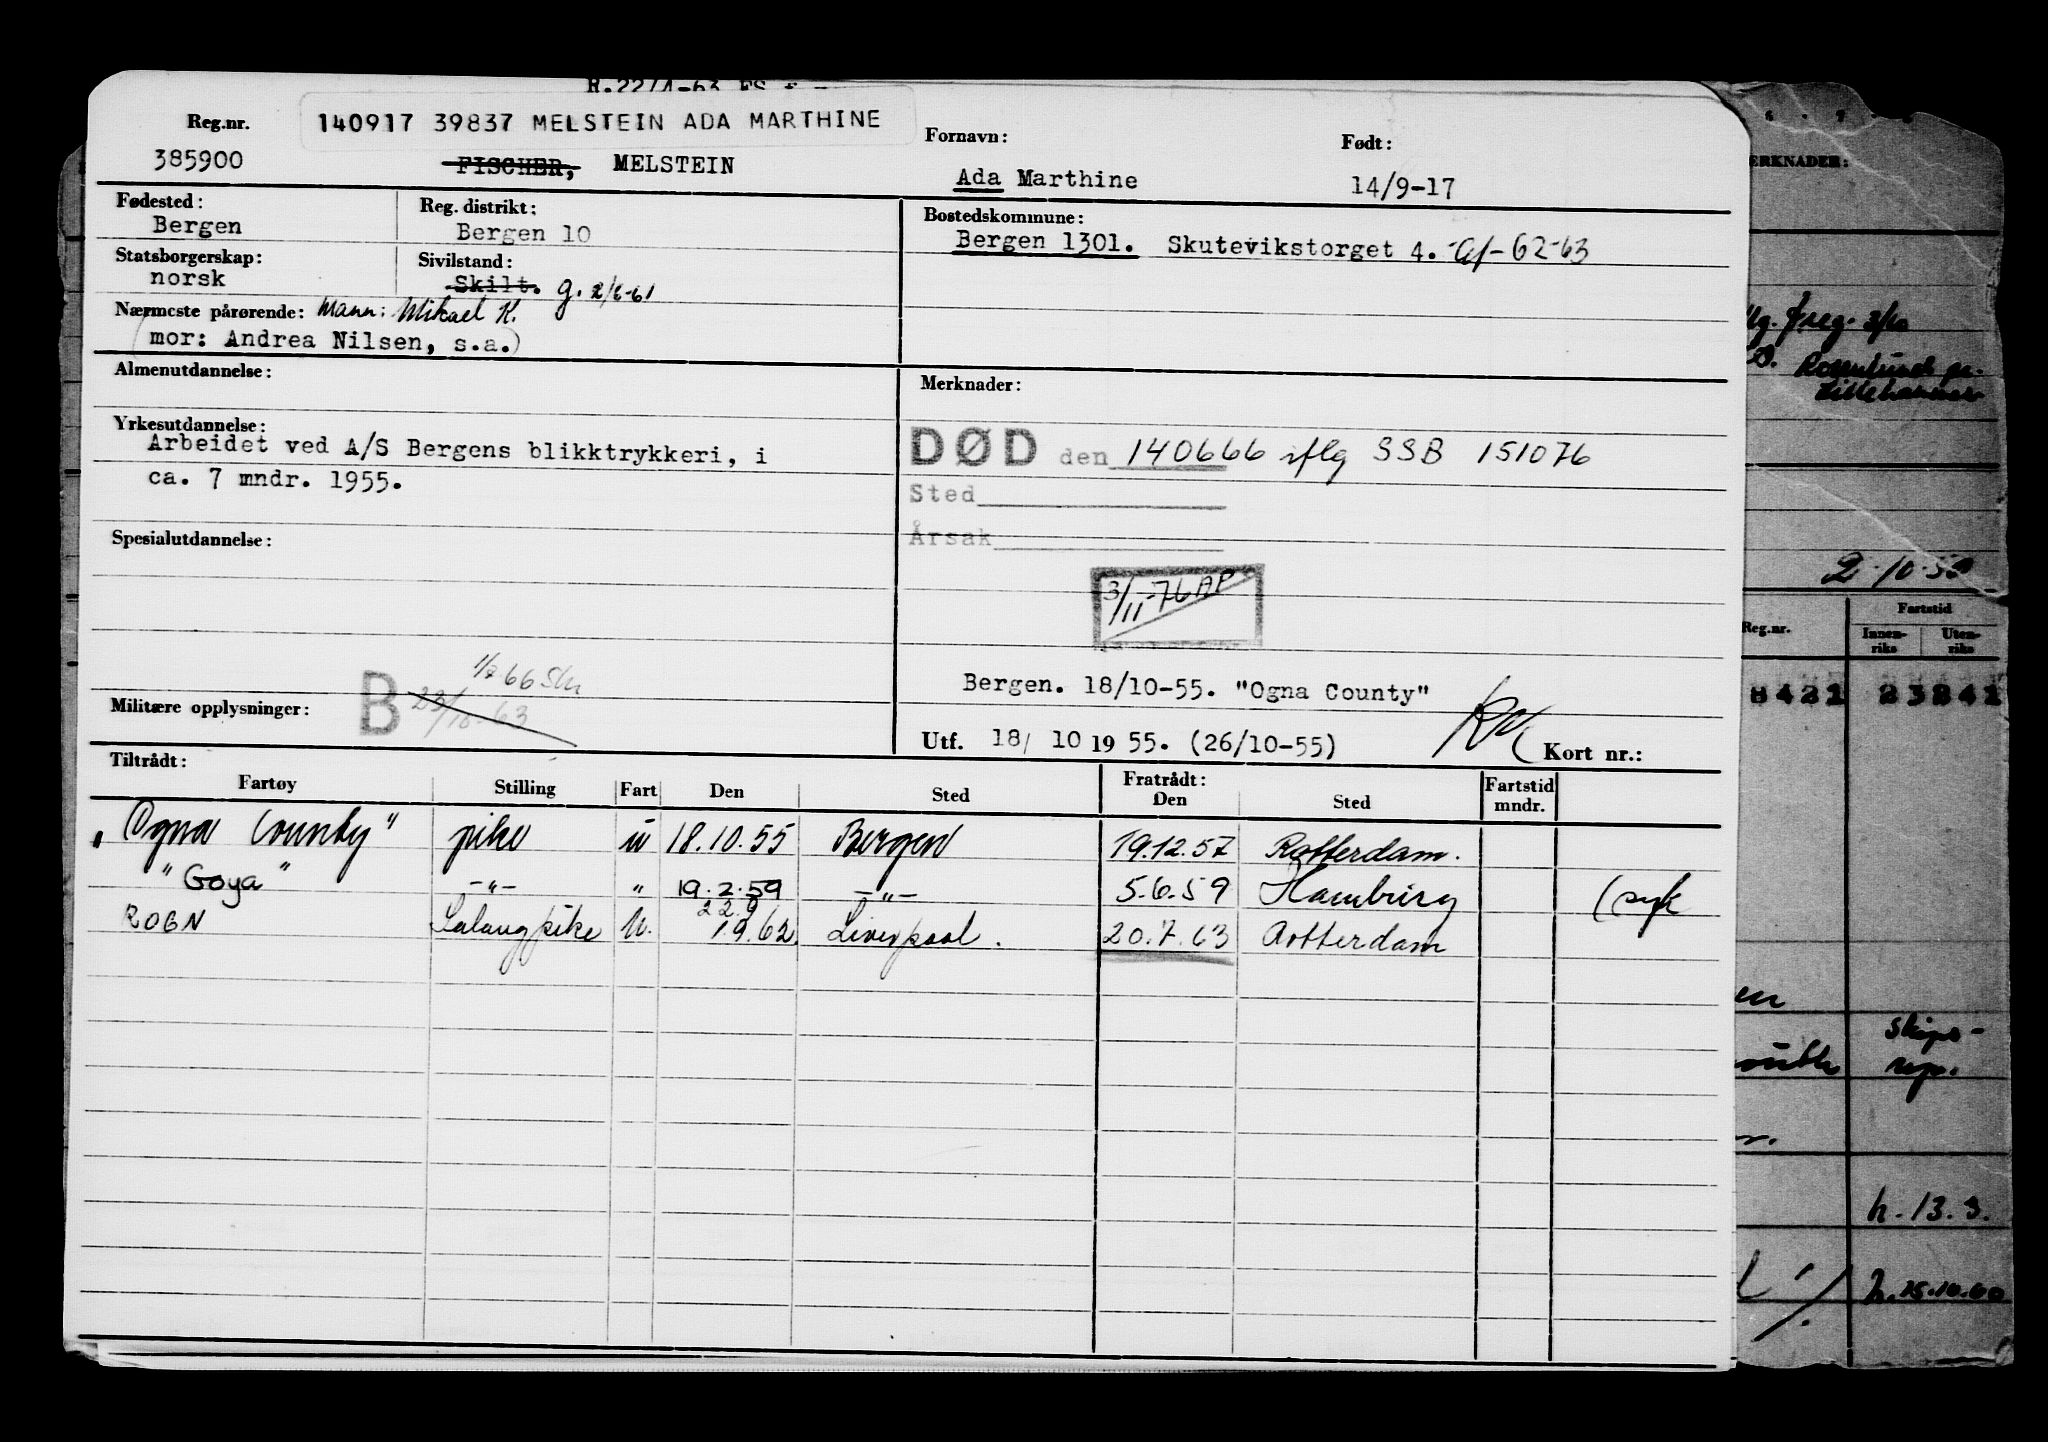 Reg.nr. 140917 39837 MELSTEIN ADA MARTHINE Fornavn: Født:
385900 FISCHER, MELSTEIN Ada Marthine 14/9-17
Fødested: Reg. distrikt: Bostedskommune:
Bergen Bergen 10 Bergen 1301. Skutevikstorget 4. -62-63
Statsborgerskap: Sivilstand:
norsk Skilt. g.
Nærmeste pårørende: Mann: Mikael K.
(mor: Andrea Nilsen, s.a.)
Almenutdannelse: Merknader:
Yrkesutdannelse:
Arbeidet ved A/S Bergens blikktrykkeri, i DØD den 140666 iflg SSB 151076
ca. 7 mndr. 1955. Sted
Spesialutdannelse: Årsak
3/11-76 AP
Bergen. 18/10-55. "Ogna County"
Militære opplysninger: B
Utf. 18/ 10 19 55. (26/10-55) Kort nr.:
Tiltrådt: Fratrådt: Fartstid
Fartøy Stilling Fart Den Sted Den Sted mndr.
"Ogna County" pike u 18.10.55 Bergen 19.12.57 Rotterdam.
"Goya" -"- " 19.2.59 -"- 5.6.59 Hamburg (syk
22.9
ROGN Salongpike u. 1.9.62. Liverpool. 20.7.63 Rotterdam
ERKNADER:
2.10.59
Fartstid
Reg.nr. Innenriks Utenriks
8421 23241
en
skips-
h. 13.3.
h. 15.10.60